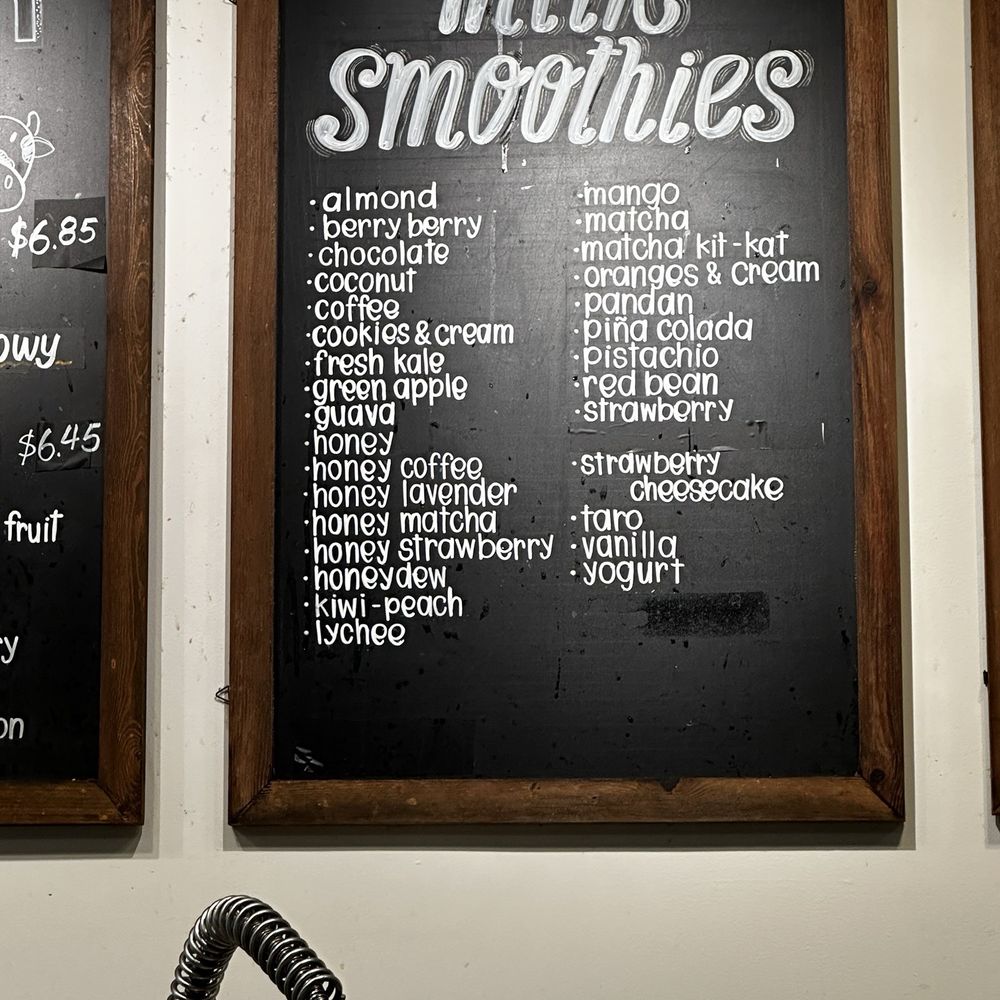 $6.85
$6.45
fruit
smoothies
· almond
· berry berry
· chocolate
· coconut
· coffee
· cookies & cream
· fresh kale
· green apple
· guava
· honey
· honey coffee
· honey lavender
· honey matcha
· honey strawberry
· honeydew
· kiwi-peach
· lychee
· mango
· matcha
· matcha kit-kat
· oranges & cream
· pandan
· piña colada
· pistachio
· red bean
· strawberry
· strawberry
cheesecake
· taro
· vanilla
· yogurt